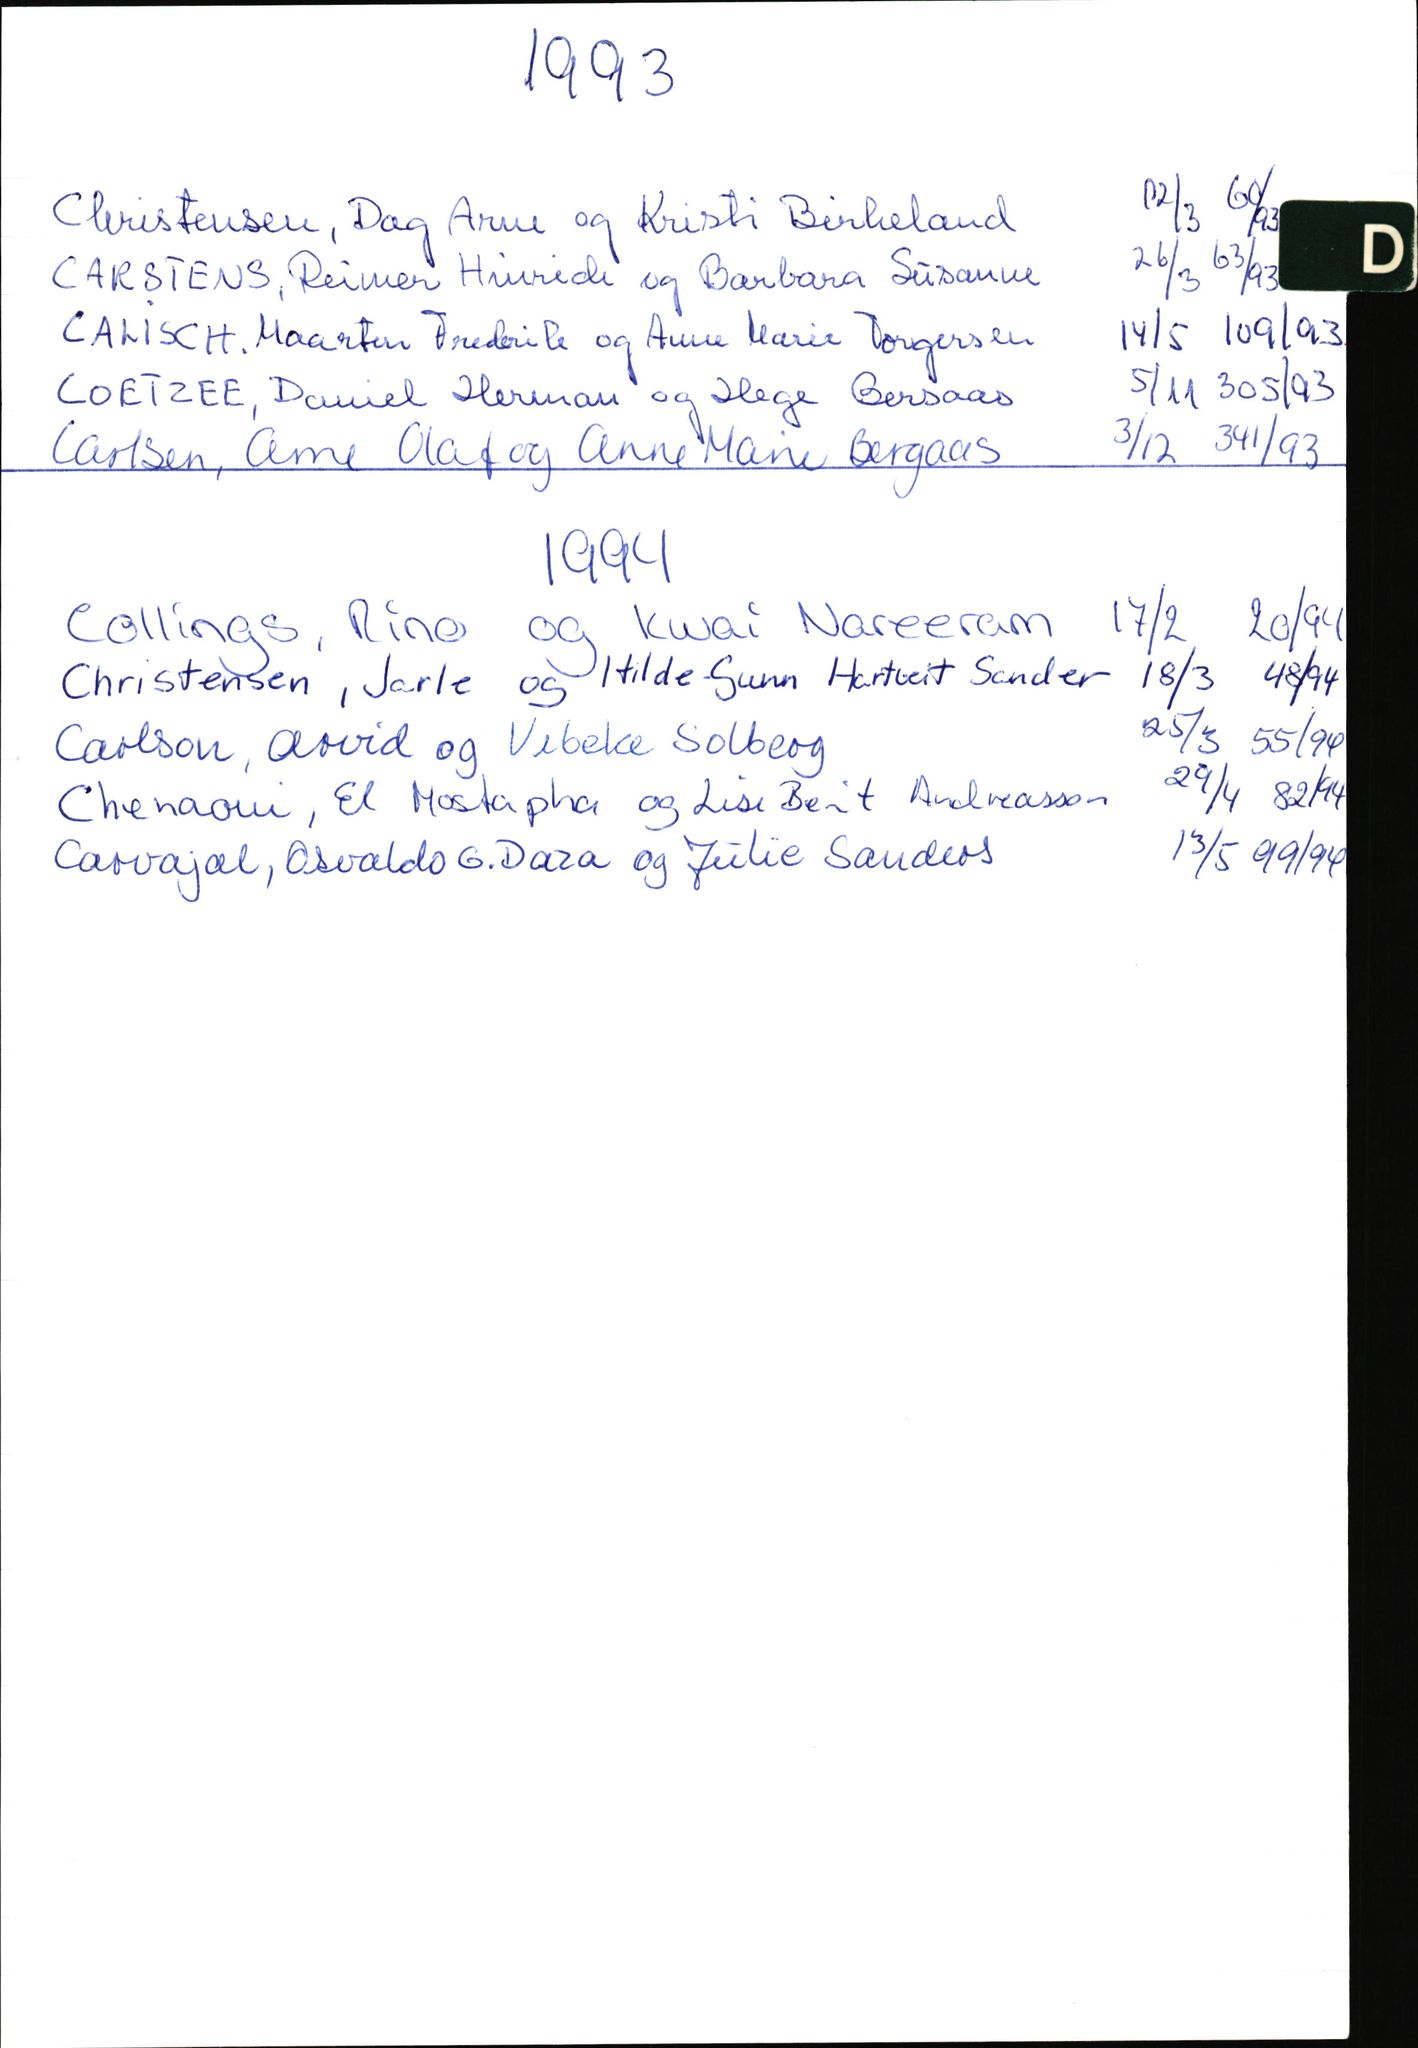 1993
Christensen, Dag Arne og Kristi Birkeland 12/3 60/93
D
CARSTENS, Reimer Hinrich og Barbara Susanne 26/3 63/93
CALISCH. Maarten Frederik og Anne Marie Torgersen 14/5 109/93
COETZEE, Daniel Herman og Hege Bersaas 5/11 305/93
Carlsen, Arne Olaf og Anne Marie Bergaas 3/12 341/93
1994
Collings, Rino og Kwai Nareeram 17/2 20/94
Christensen, Jarle og Hilde-Gunn Hartveit Sander 18/3 48/94
Carlson, Arvid og Vibeke Solberg 25/3 55/94
Chenaoui, El Mostapha og Lise Berit Andreasson 29/4 82/94
Carvajal, Osvaldo G. Daza og Julie Sanders 13/5 99/94